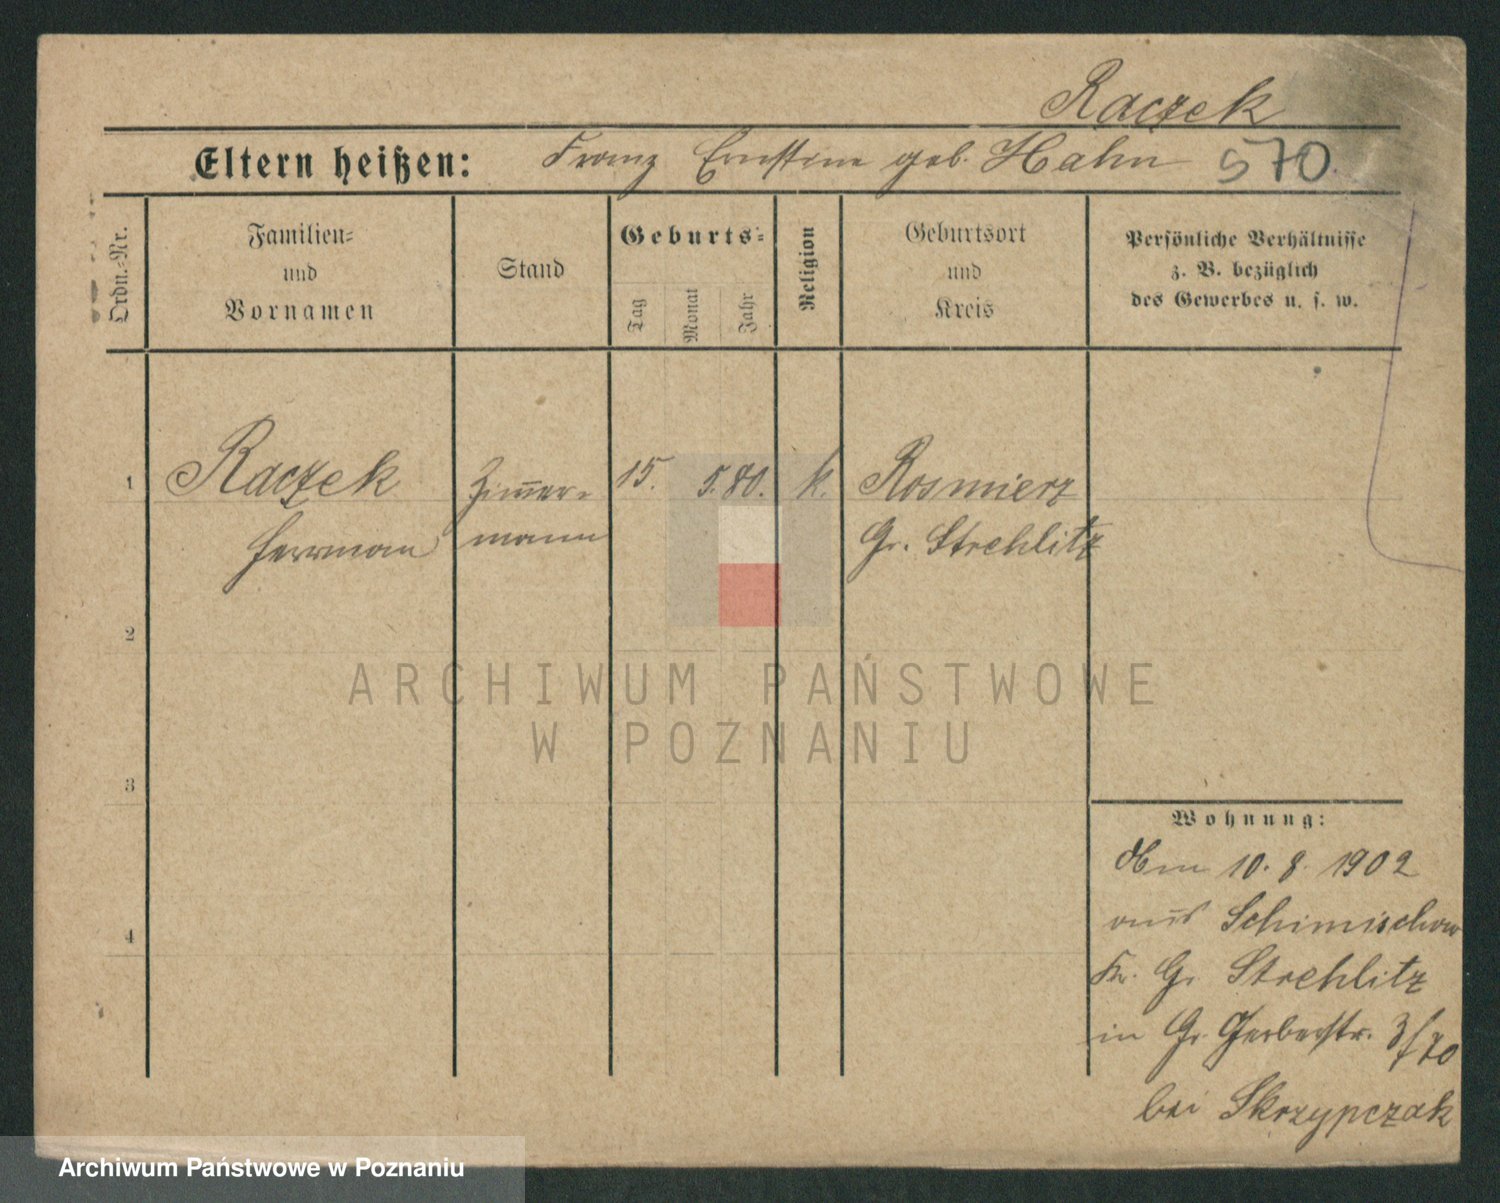 Raczek
Eltern heißen: Franz Ernstine geb. Hahn 570
Ordn.-Nr.
Familien- und Vornamen
Stand
Geburts-
Tag
Monat
Jahr
Religion
Geburtsort und Kreis
Persönliche Verhältnisse
z. B. bezüglich
des Gewerbes u. s. w.
1 Raczek Zimmer- 15. 5. 80. k. Rosmierz
Herrman mann Gr. Strehlitz
2
3
4
ARCHIWUM PAŃSTWOWE
W POZNANIU
Wohnung:
10. 8. 1902
aus Schimischow
Kr. Gr. Strehlitz
in Gr. Gerberstr. 3/70
bei Skrzypczak
Archiwum Państwowe w Poznaniu